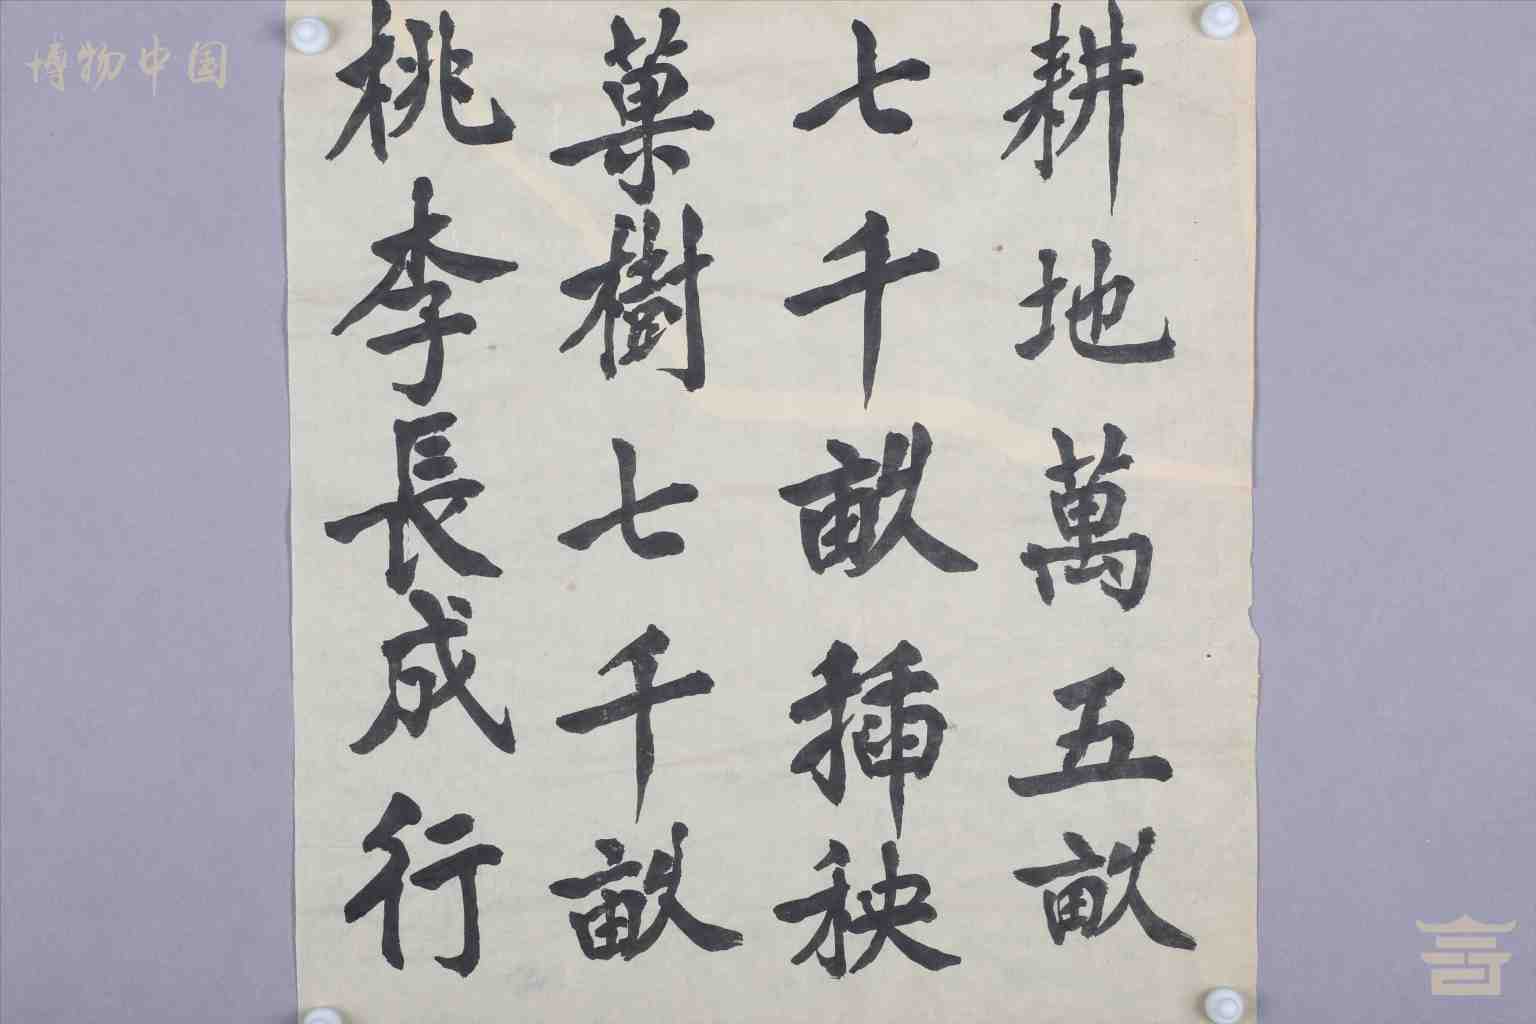 耕地萬五畝
七千畝插秧
菓樹七千畝
桃李長成行
博物中国